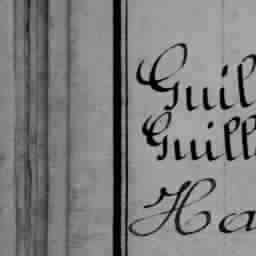 Guil
Guill
Ha